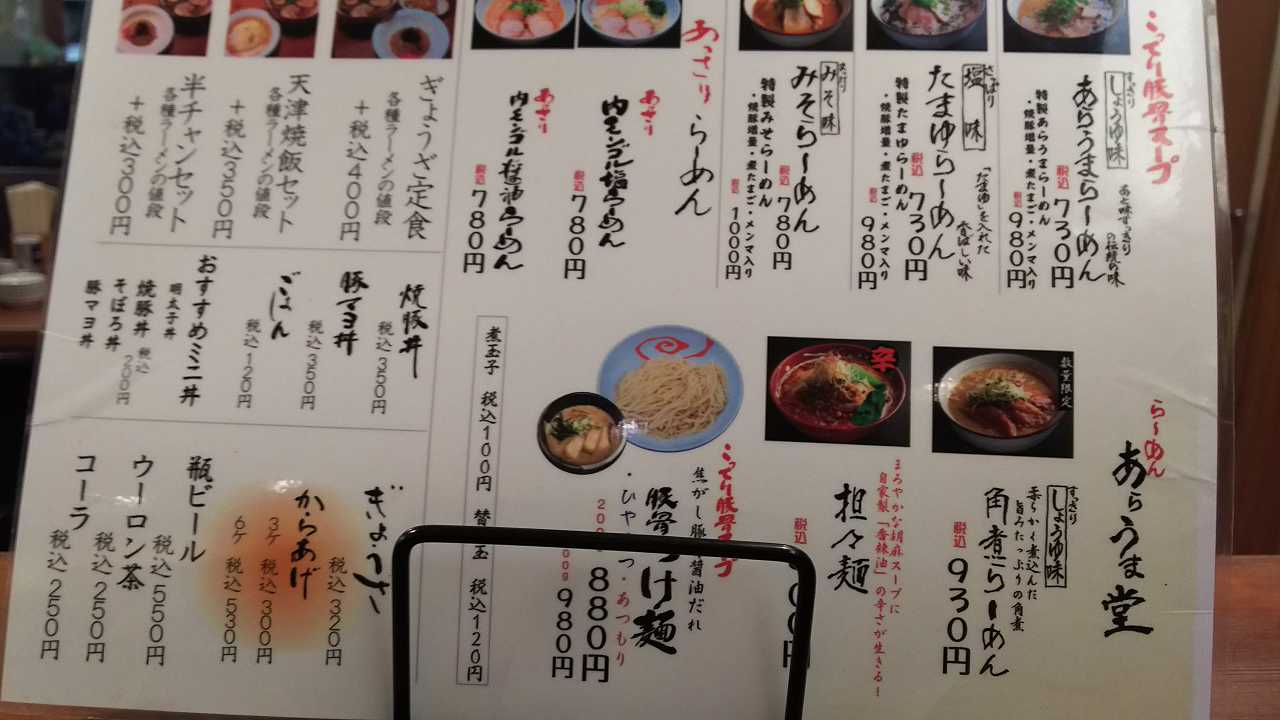 こってり豚骨スープ
すっきり
しょうゆ味
あと味すっきり
の伝統の味
あらうまらーめん
税込 730円
特製あらうまらーめん
・焼豚増量・煮たまご・メンマ入り
税込 980円
さっぱり
塩味
「たまゆ」を入れた
香ばしい味
たまゆらーめん
税込 730円
特製たまゆらーめん
・焼豚増量・煮たまご・メンマ入り
税込 980円
みそ味
みそらーめん
税込 780円
特製みそらーめん
・焼豚増量・煮たまご・メンマ入り
税込 1000円
あさりらーめん
あさり
内モンゴル塩らーめん
税込 780円
あさり
内モンゴル醤油らーめん
税込 780円
ぎょうざ定食
各種ラーメンの値段
+税込400円
天津焼飯セット
各種ラーメンの値段
+税込350円
半チャンセット
各種ラーメンの値段
+税込300円
焼豚丼
税込 350円
豚マヨ丼
税込 350円
ごはん
税込 120円
おすすめミニ丼
明太子丼
焼豚丼 税込
そぼろ丼 200円
豚マヨ丼
らーめん
あらうま堂
数量限定
すっきり
しょうゆ味
柔らかく煮込んだ
旨みたっぷりの角煮
角煮らーめん
税込 930円
辛
まろやかな胡麻スープに
自家製「香辣油」の辛さが生きる!
担々麺
税込
こってり豚骨スープ
焦がし豚
醤油だれ
豚骨つけ麺
・ひやあつ・あつもり
880円
980円
煮玉子 税込100円 替玉 税込120円
ぎょうざ
税込 320円
からあげ
3ケ 税込 300円
6ケ 税込 530円
瓶ビール
税込 550円
ウーロン茶
税込 250円
コーラ
税込 250円